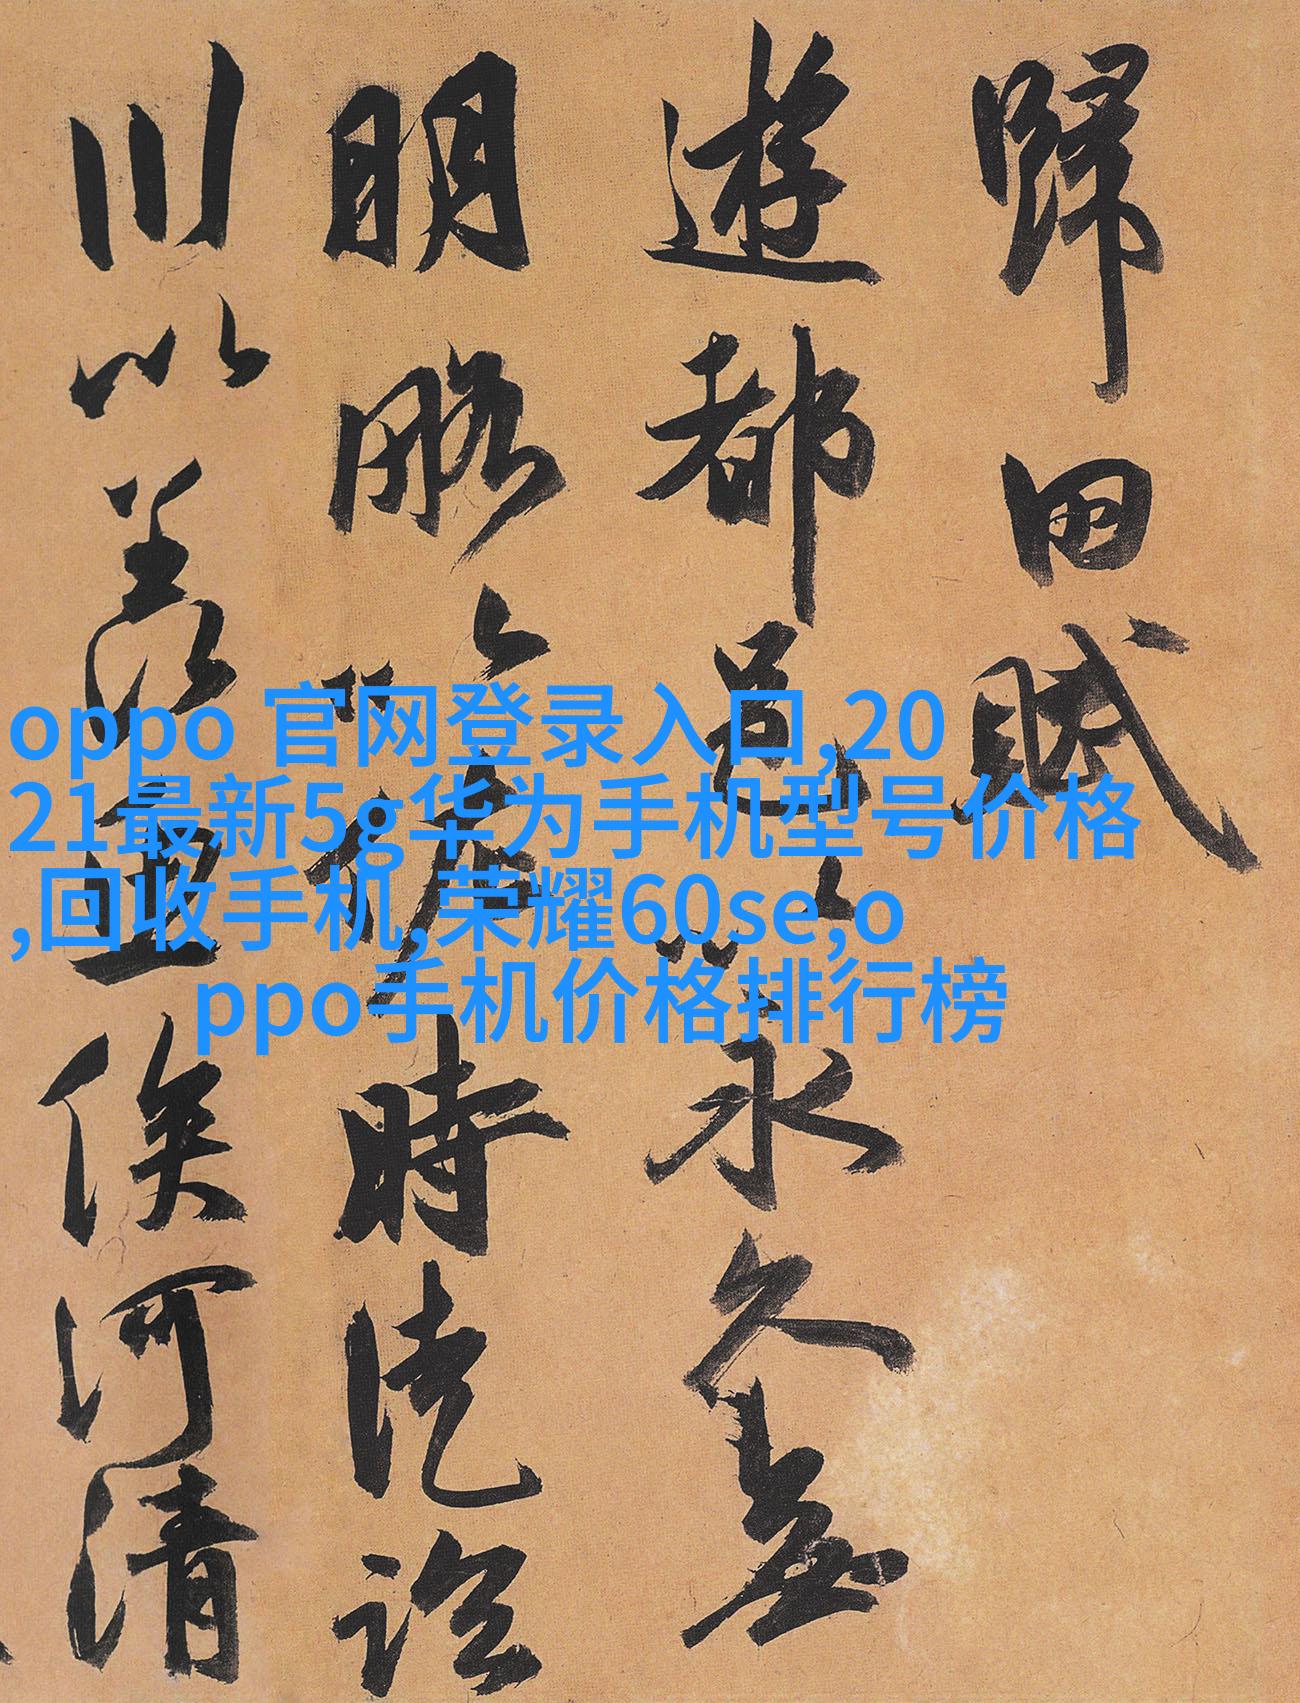 歸田賦
遊都邑以永久無
明略以佐時徒詠
川以羨魚俟河清
oppo 官网登录入口,20
21最新5g华为手机型号价格
,回收手机,荣耀60se,o
ppo手机价格排行榜